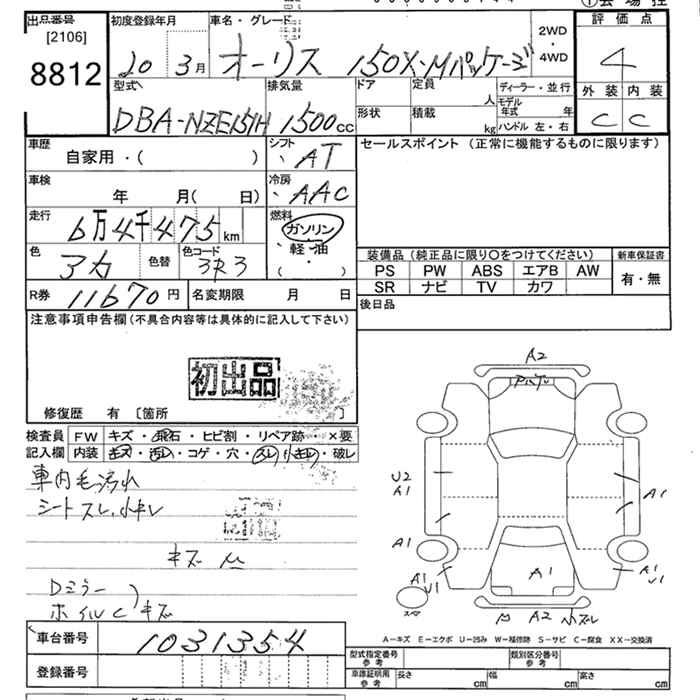 出品番号
[2106]
8812
初度登録年月
20 3月
車名・グレード
オーリス 150X・Mパッケージ
2WD
・
4WD
評価点
4
外装 内装
C C
型式
DBA-NZE151H
排気量
1500cc
ドア
定員
人
ディーラー・並行
モデル年式 年
形状
積載
kg
ハンドル 左・右
車歴
自家用・( )
シフト
AT
セールスポイント (正常に機能するものに限ります)
車検
年 月( 日)
冷房
AAC
走行
6万4千475km
燃料
ガソリン
・
軽・油
・
( )
色
アカ
色替
色コード
3R3
装備品 (純正品に限り○をつけてください)
新車保証書
PS PW ABS エアB AW
SR ナビ TV カワ
有・無
R券 11670円
名変期限 月 日
後日品
注意事項申告欄(不具合内容等は具体的に記入して下さい)
初出品
修復歴 有 [箇所 ]
検査員
記入欄
FW キズ・飛石・ヒビ割・リペア跡・×要
内装 キズ・汚れ・コゲ・穴・スレ・小キレ・破レ
車内毛汚れ
シートスレ,小キレ
キズ
Dミラー
ホイルC キズ
A2
U2
A1
A1
A1
A1
U1
A1
A1
U1
スペア
A2
A-キズ E-エクボ U-凹み W-補修跡 S-サビ C-腐食 XX-交換済
車台番号
1031354
登録番号
型式指定番号
参考
類別区分番号
参考
車庫証明用
参考
長さ cm
幅 cm
高さ cm